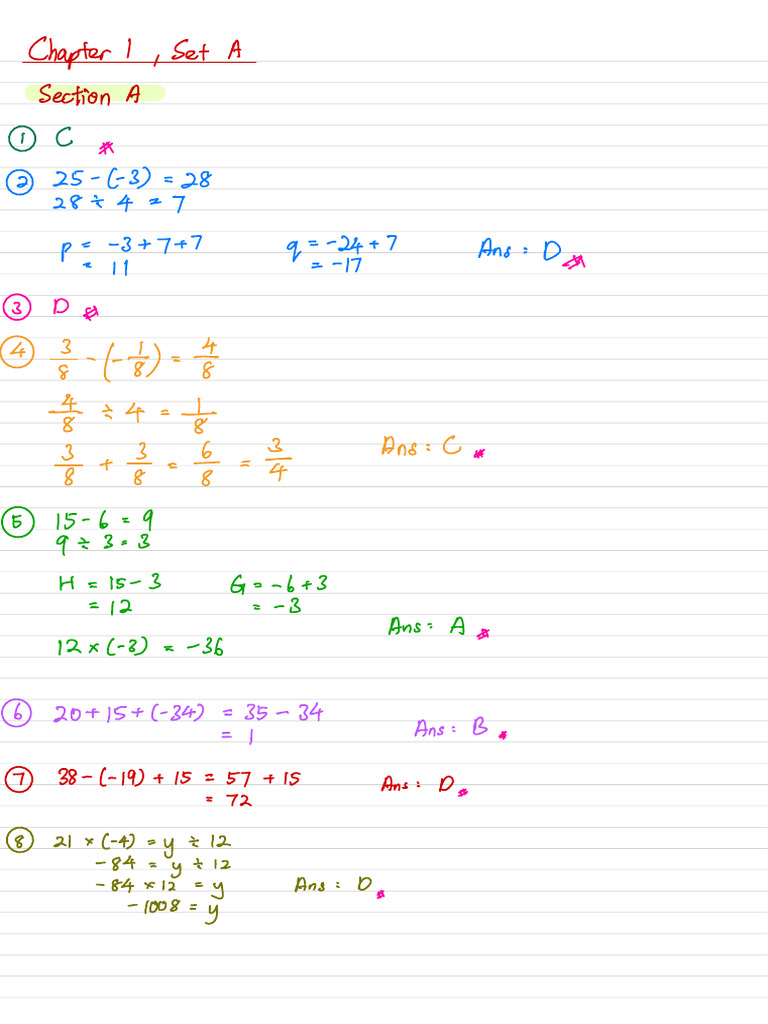 Chapter 1, Set A
Section A
① C
② 25 - (-3) = 28
28 ÷ 4 = 7
p = -3 + 7 + 7 q = -24 + 7 Ans: D
= 11 = -17
③ D
④ 3/8 - (-1/8) = 4/8
4/8 ÷ 4 = 1/8
3/8 + 3/8 = 6/8 = 3/4 Ans: C
⑤ 15 - 6 = 9
9 ÷ 3 = 3
H = 15 - 3 G = -6 + 3
= 12 = -3
Ans: A
12 × (-3) = -36
⑥ 20 + 15 + (-34) = 35 - 34
= 1 Ans: B
⑦ 38 - (-19) + 15 = 57 + 15 Ans: D
= 72
⑧ 21 × (-4) = y ÷ 12
-84 = y ÷ 12
-84 × 12 = y Ans: D
-1008 = y